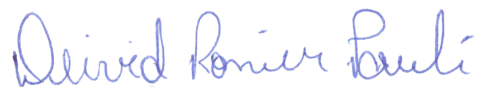 Deivid Ronier Pauli